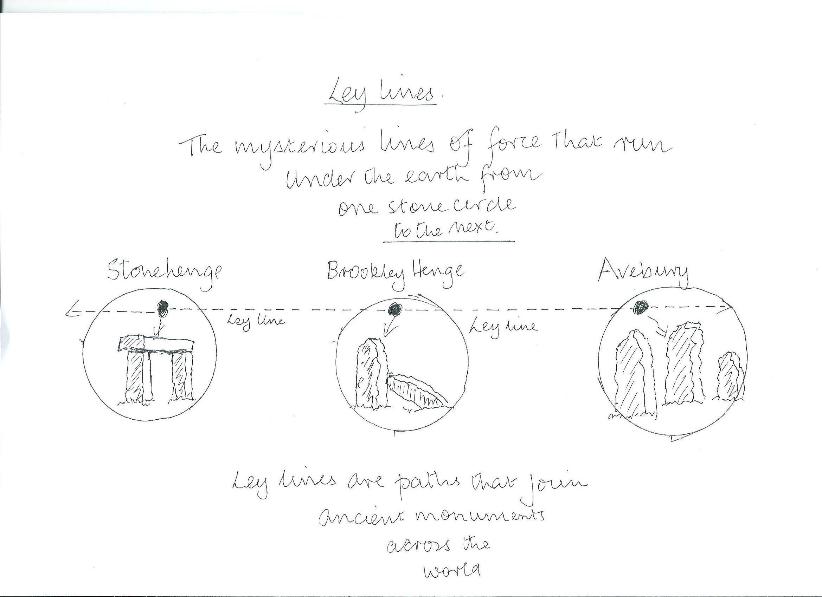 Ley lines.
The mysterious lines of force that run
under the earth from
one stone circle
to the next.
Stonehenge Brookley Henge Avebury
Ley line Ley line
Ley lines are paths that join
ancient monuments
across the
world